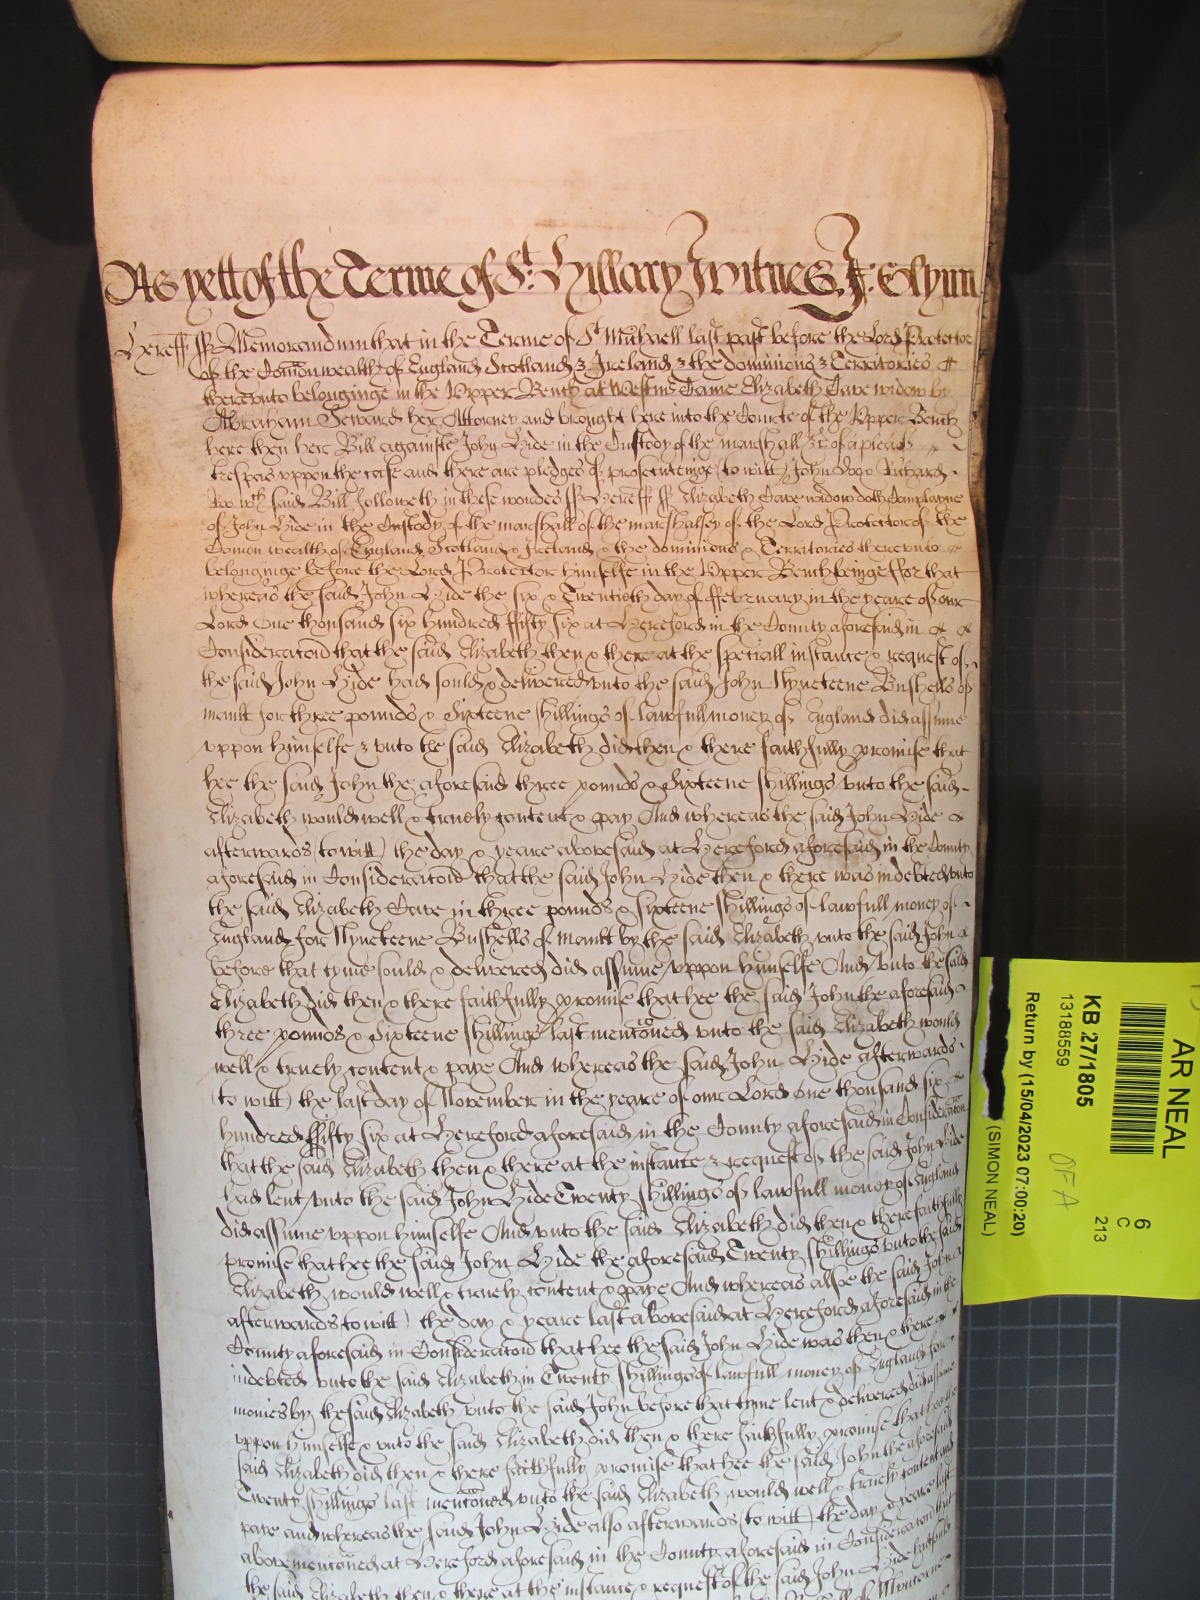 As yett of the Terme of St. Hillary Witnes J: Glynn
Hereff ss Memorandum that in the Terme of St Michaell last past before the Lord Protector
of the Comon wealth of England Scotland & Ireland & the dominions & Territories
thereunto belonginge in the Upper Bench at Westmr Came Elizabeth Cave widow by
Abraham Seward her Attorney and brought here into the Courte of the Upper Bench
here then her Bill againste John Hide in the Custody of the marshall &c of a plea of
trespas uppon the case and there are pledges of prosecuteinge (to witt) John Doo & Richard
Roo wch said Bill followeth in these wordes ss Hereff ss Elizabeth Cave widow doth Complayne
of John Hide in the Custody of the marshall of the marshalsey of the Lord Protector of the
Comon wealth of England Scotland & Ireland & the dominions & Territories thereunto
belonginge before the Lord Protector himselfe in the Upper Bench beinge ffor that
whereas the said John Hide the six & Twentieth day of ffebruary in the yeare of our
Lord One thousand six hundred ffifty six at Hereford in the County aforesaid in
Consideracon that the said Elizabeth then & there at the speciall instance & request of
the said John Hide had sould & delivered unto the said John Nyneteene Bushells of
mault for three pounds & Sixteene shillings of lawfull money of England did assume
uppon himselfe & unto the said Elizabeth did then & there faithfully promise that
hee the said John the aforesaid three pounds & Sixteene shillings unto the said
Elizabeth would well & truely content & pay And whereas the said John Hide
afterwards (to witt) the day & yeare abovesaid at Hereford aforesaid in the County
aforesaid in Consideracon that the said John Hide then & there was indebted unto
the said Elizabeth Cave in three pounds & sixteene shillings of lawfull money of
England for Nyneteene Bushells of mault by the said Elizabeth unto the said John
before that tyme sould & delivered did assume uppon himselfe And unto the said
Elizabeth did then & there faithfully promise that hee the said John the aforesaid
three pounds & Sixteene shillings last mentoned unto the said Elizabeth would
well & truely content & paye And whereas the said John Hide afterwards
(to witt) the last day of November in the yeare of our Lord One thousand six
hundred ffifty six at Hereford aforesaid in the County aforesaid in Consideracon
that the said Elizabeth then & there at the instance & request of the said John Hide
had lent unto the said John Hide Twenty shillings of lawfull money of England
did assume uppon himselfe And unto the said Elizabeth did then & there faithfully
promise that hee the said John Hide the aforesaid Twenty shillings unto the said
Elizabeth would well & truely content & paye And whereas allsoe the said John
afterwards (to witt) the day & yeare last abovesaid at Hereford aforesaid in the
County aforesaid in Consideracon that hee the said John Hide was then & there
indebted unto the said Elizabeth in Twenty shillings of lawfull money of England for
monies by the said Elizabeth unto the said John before that tyme lent & delivered did assume
uppon himselfe & unto the said Elizabeth did then & there faithfully promise that hee the
said Elizabeth did then & there faithfully promise that hee the said John the aforesaid
Twenty shillings last mentoned unto the said Elizabeth would well & truely content and
paye and whereas the said John Hide also afterwards (to witt) the day & yeare last
abovementoned at Hereford aforesaid in the County aforesaid in Consideracon that
the said Elizabeth then & there at the instance & request of the said John Hide
AR NEAL
KB 27/1805
13188559
Return by (15/04/2023 07:00:20)
(SIMON NEAL)
6
C
213
OFA